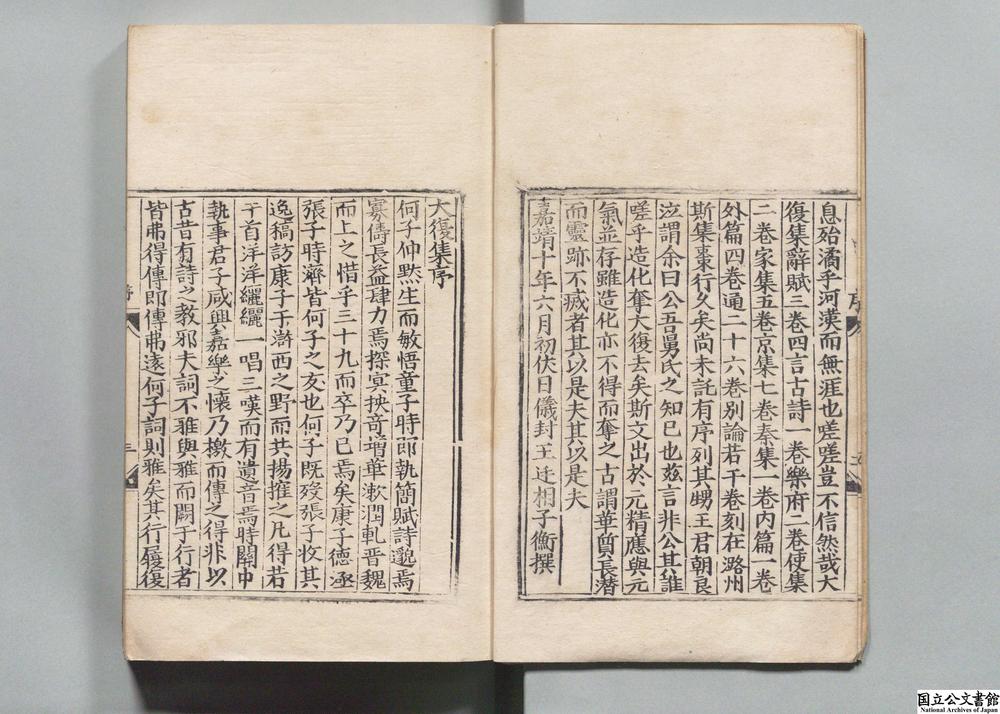 息殆潏乎河漢而無涯也嗟嗟豈不信然哉大
復集辭賦三卷四言古詩一卷樂府二卷使集
二卷家集五卷京集七卷秦集一卷内篇一卷
外篇四卷通二十六卷别論若干卷刻在潞州
斯集棗行久矣尚未託有序列其甥王君朝良
泣謂余曰公吾舅氏之知已也玆言非公其誰
嗟乎造化奪大復去矣斯文出於元精應與元
氣並存雖造化亦不得而奪之古謂華質長潛
而靈跡不㓕者其以是夫其以是夫
嘉靖十年六月初伏日儀封王廷相子衡撰
序
五
大復集序
何子仲黙生而敏悟童子時即執簡賦詩邈焉
寡儔長益肆力焉探㝠抉竒增華漱潤軋晋魏
而上之惜乎三十九而卒乃已焉矣康子德涵
張子時濟皆何子之友也何子既殁張子收其
逸稿訪康子于滸西之野而共揚搉之凡得若
干首洋洋纚纚一唱三嘆而有遺音焉時關中
執事君子咸興嘉樂之懷乃檄而傳之得非以
古昔有詩之教邪夫詞不雅與雅而闕于行者
皆弗得傳即傳弗逺何子詞則雅矣其行履復
序
三
国立公文書館
National Archives of Japan